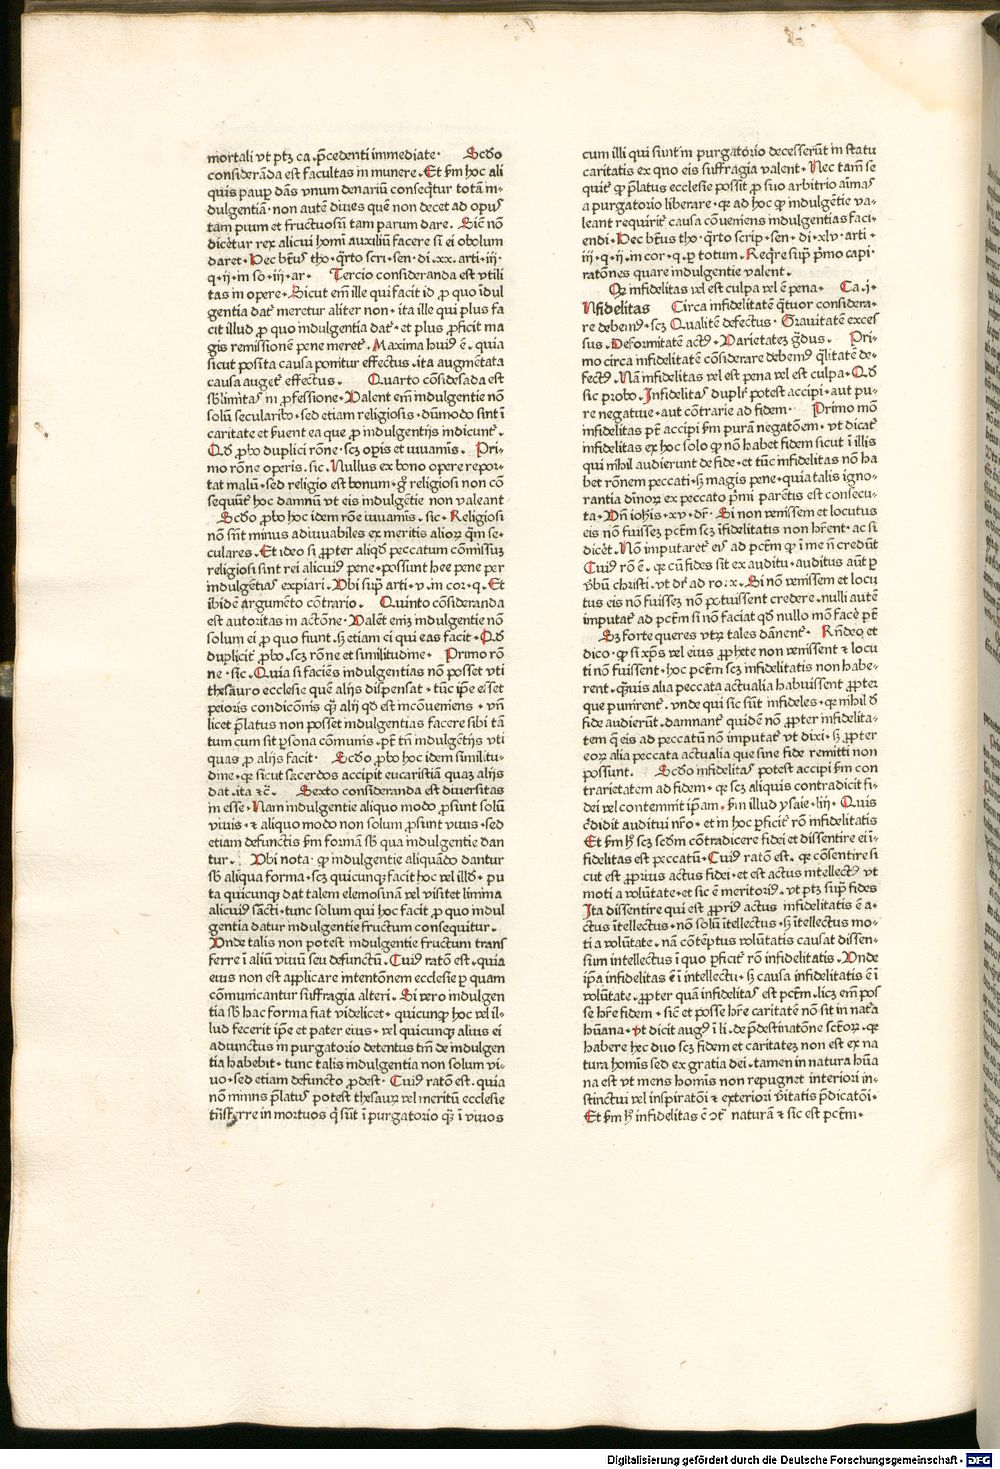 mortali vt ptꝫ ca. p̄cedenti immediate· Scd̄o
considerāda est facultas in munere. Et fm̄ hoc ali
quis paup̱ dās vnum denariū conseq̄tur totā in-
dulgentiā· non autē diues quē non decet ad opus
tam pium et fructuosū tam parum dare. Siē nō
dicētur rex alicui homī auxiliū facere si ei obolum
daret. Hec btūs tho. q̄rto scri. sen. di. xx. arti. iij·
q. ij. in so. iij. ar· Tercio consideranda est vtili
tas in opere. Sicut em̄ ille qui facit id ꝓ quo īdul
gentia dat᷑ meretur aliter non. ita ille qui plus fa
cit illud ꝓ quo indulgentia dat᷑. et plus ꝓficit ma
gis remissionē pene meret᷑. Maxima huiꝰ ē. quia
sicut posita causa ponitur effectus. ita augmētata
causa auget᷑ effectus. Quarto cōsidesada est
sb̄limitas in ꝓfessione. Valent em̄ indulgentie nō
solū secularibꝰ. sed etiam religiosis. dūmodo sint ī
caritate et ẜuent ea que ꝓ indulgentijs indicunt᷑.
Qd̄ ꝓbo duplici rōne. scꝫ opis et iuuamīs. Pri-
mo rōne operis. sic. Nullus ex bono opere repor-
tat malū. sed religio est bonum. gͦ religiosi non cō
sequūt᷑ hoc damnū vt eis indulgētie non valeant
Scd̄o ꝓbo hoc idem rōe iuuamīs. sic. Religiosi
nō sūt minus adiuuabiles ex meritis alioꝝ q̄m se-
culares. Et ideo si ꝓpter aliqd̄ peccatum cōmissuꝫ
religiosi sint rei alicuiꝰ pene. possunt hee pene per
indulgētias expiari. Vbi sup̱ arti. v. in cor. q. Et
ibidē argumēto cōtrario. Quinto cōsideranda
est autoritas in actōne. Valēt emꝫ indulgentie nō
solum ei ꝓ quo fiunt. sꝫ etiam ei qui eas facit. Qd̄
duplicit᷑ ꝓbo. scꝫ rōne et similitudine. Primo rō
ne. sic. Quia si faciēs indulgentias nō posset vti
thesauro ecclesie quē alijs dispensat. tūc ip̄e esset
peioris condicōnis qꝫ alij qd̄ est incōueniens. vn̄
licet p̄latus non posset indulgentias facere sibi tā
tum cum sit ꝑsona cōmunis. pt̄ tn̄ indulgētijs vti
quas ꝓ alijs facit. Scd̄o ꝓbo hoc idem similitu-
dine. qꝫ sicut sacerdos accipit eucaristiā quaꝫ alijs
dat. ita ⁊c̄. Sexto consideranda est diuersitas
in esse. Nam indulgentie aliquo modo ꝓsunt solū
viuis. ⁊ aliquo modo non solum ꝓsunt viuis. sed
etiam defunctis fm̄ formā sb̄ qua indulgentie dan
tur. Vbi nota. ꝙ indulgentie aliquādo dantur
sb̄ aliqua forma. scꝫ quicunqꝫ facit hoc vel illd̄. pu
ta quicunqꝫ dat talem elemosinā vel visitet limina
alicuiꝰ sācti. tunc solum qui hoc facit ꝓ quo indul
gentia datur indulgentie fructum consequitur.
Vnde talis non potest indulgentie fructum trans
ferre ī aliū viuū seu defunctū. Cuiꝰ ratō est. quia
eius non est applicare intentōnem ecclesie ꝑ quam
cōmunicantur suffragia alteri. Si vero indulgen
tia sb̄ hac forma fiat videlicet. quicunqꝫ hoc vel il-
lud fecerit ip̄e et pater eius. vel quicunqꝫ alius ei
adiunctus in purgatorio detentus tm̄ de indulgen
tia habebit. tunc talis indulgentia non solum vi-
uo. sed etiam defuncto ꝓdest. Cuiꝰ ratō est. quia
nō minus p̄latus potest thesauꝝ vel meritū ecclesie
trāsferre in mortuos q̄ sūt ī purgatorio qꝫ ī viuos
cum illi qui sunt in purgatorio decesserūt in statu
caritatis ex qͦ eis suffragia valent. Nec tam̄ se
quit᷑ ꝙ p̄latus ecclesie possit ꝓ suo arbitrio aīmas
a purgatorio liberare. qꝫ ad hoc ꝙ indulgētie va-
leant requirit᷑ causa cōueniens indulgentias faci-
endi. Hec btūs tho. q̄rto scrip. sen. di. xlv. arti.
iij. q. ij. in cor. q. ꝑ totum. Req̄re sup̱ pͥmo capi.
ratōnes quare indulgentie valent.
Qꝫ infidelitas vel est culpa vel ē pena. Ca. j.
Nfidelitas Circa infidelitatē q̄tuor considera-
re debemꝰ. scꝫ Qualitē defectus. Grauitatē exces
sus. Deformitatē actꝰ. Varietateꝫ gͣdus. Pri-
mo circa infidelitatē cōsiderare debemꝰ q̄litatē de-
fectꝰ. Nā infidelitas vel est pena vel est culpa. Qd̄
sic probo. Infidelitas duplr̄ potest accipi. aut pu-
re negatiue. aut cōtrarie ad fidem. Primo mō
infidelitas pt̄ accipi fm̄ purā negatōem. vt dicat᷑
infidelitas ex hoc solo ꝙ nō habet fidem sicut ī illis
qui nihil audierunt de fide. et tūc infidelitas nō ha
bet rōnem peccati. sꝫ magis pene. quia talis igno-
rantia diuinoꝝ ex peccato pͥmi parētis est consecu-
ta. Vn̄ iohīs. xv. dr̄. Si non venissem et locutus
eis nō fuisseꝫ pctm̄ scꝫ īfidelitatis non hr̄ent. ac si
dicēt. Nō imputaret᷑ eis ad pctm̄ ꝙ ī me nō credūt
Cuiꝰ rō ē. qꝫ cū fides sit ex auditu. auditus aūt ꝑ
vb̄um christi. vt dr̄ ad ro. x. Si nō venissem et locu
tus eis nō fuisseꝫ nō potuissent credere. nulli autē
imputat᷑ ad pctm̄ si nō faciat qd̄ nullo mō facē pt̄
Sꝫ forte queres vtꝝ tales dānent᷑. Rn̄deo et
dico. ꝙ si xp̄s vel eius ꝓphete non venissent ⁊ locu
ti nō fuissent. hoc pctm̄ scꝫ infidelitatis non habe-
rent. qꝫuis alia peccata actualia habuissent ꝓpter
que punirent᷑. vnde qui sic sūt infideles. qꝫ nihil d̄
fide audierūt. damnant᷑ quidē nō ꝓpter infidelita-
tem q̄ eis ad peccatū nō imputat᷑ vt dixi. sꝫ ꝓpter
eoꝝ alia peccata actualia que sine fide remitti non
possunt. Scd̄o infidelitas potest accipi fm̄ con
trarietatem ad fidem. qꝫ scꝫ aliquis contradicit fi-
dei vel contemnit ip̄am. fm̄ illud ysaie. liij. Quis
c̄didit auditui nr̄o. et in hoc ꝑficit᷑ rō infidelitatis
Et fm̄ hͦ scꝫ scd̄m cōtradicere fidei et dissentire ei ī-
fidelitas est pctatū. Cuiꝰ ratō est. qꝫ cōsentire si
cut est ꝓprius actus fidei. et est actus intellectꝰ vt
moti a volūtate. et sic ē meritoriꝰ. vt ptꝫ sup̱ fides
Ita dissentire qui est ꝓpriꝰ actus infidelitatis ē a-
ctus ītellectus. nō solū ītellectus. sꝫ ītellectus mo-
ti a volūtate. nā cōtēptus volūtatis causat dissen-
sum intellectus ī quo ꝑficit᷑ rō infidelitatis. Vnde
ip̄a infidelitas ē ī intellectu. sꝫ causa infidelitatis ē ī
volūtate. ꝓpter quā infidelitas est pctm̄. licꝫ em̄ pos
se hr̄e fidem. sic̄ et posse hr̄e caritatē nō sit in nat᷑a
hūana. vt dicit augꝰ ī li. de p̄destinatōne sct̄oꝝ. qꝫ
habere hec duo scꝫ fidem et caritateꝫ non est ex na
tura homīs sed ex gratia dei. tamen in natura hūa
na est vt mens homīs non repugnꝫt interiori in-
stinctui vel inspiratōi ⁊ exteriori v̄itatis p̄dicatōi.
Et fm̄ hͦ infidelitas ē ɔt᷑ naturā ⁊ sic est pctm̄.
Digitalisierung gefördert durch die Deutsche Forschungsgemeinschaft - DFG